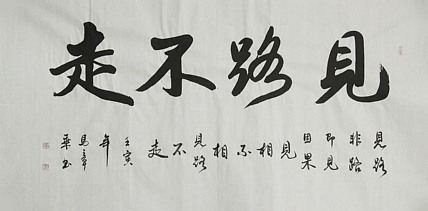 見路不走
見路非路即見因果見相不相見路不走
壬寅年